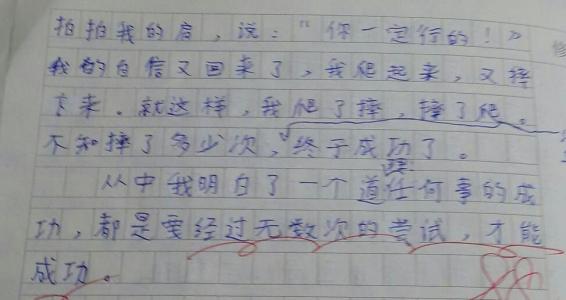 拍拍我的肩，说："你一定行的！"
我的自信又回来了，我爬起来，又摔
下来。就这样，我爬了摔，摔了爬。
不知摔了多少次，终于成功了。
从中我明白了一个道理任何事的成
功，都是要经过无数次的尝试，才能
成功。